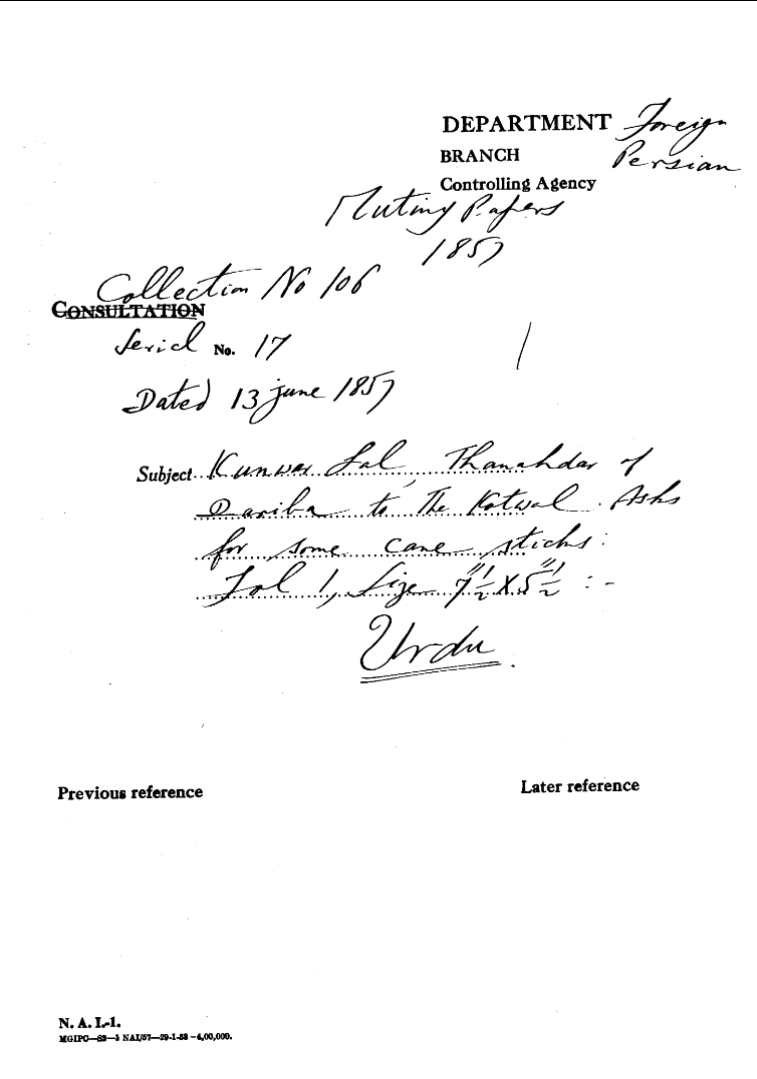 DEPARTMENT Foreign
BRANCH Persian
Controlling Agency
Mutiny Papers
1857
Collection No 106
CONSULTATION
Serial No. 17
Dated 13 june 1857
Subject Kunwar Lal, Thanahdar of
Dariba to The Kotwal. Asks
for some cane sticks:
Fol 1, Size 7"½ X 5"½ :-
Urdu.
Previous reference
Later reference
N. A. I.-1.
MGIPC—63—3 NAI/57—29-1-58—4,00,000.